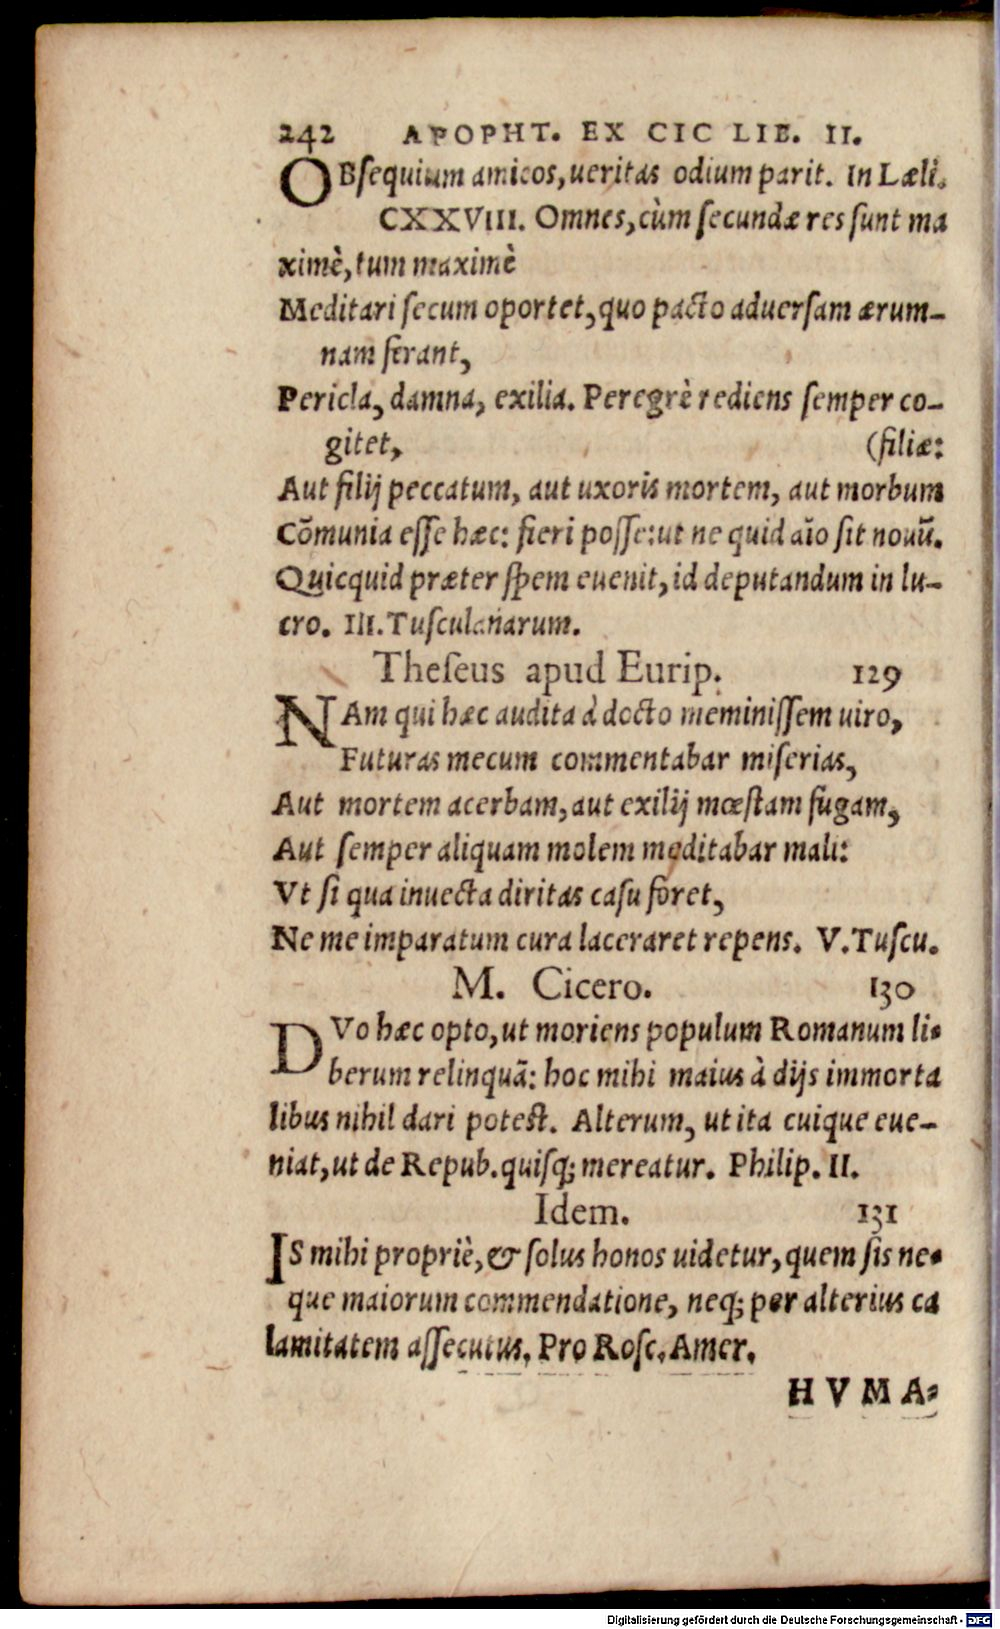 242 APOPHT. EX CIC LIB. II.
OBsequium amicos, ueritas odium parit. In Læli.
CXXVIII. Omnes, cùm secundæ res sunt ma
ximè, tum maximè
Meditari secum oportet, quo pacto aduersam ærum-
nam ferant,
Pericla, damna, exilia. Peregrè rediens semper co-
gitet, (filiæ:
Aut filij peccatum, aut uxoris mortem, aut morbum
Cõmunia esse hæc: fieri posse: ut ne quid aĩo sit nouũ.
Quicquid præter spem euenit, id deputandum in lu-
cro. III. Tusculanarum.
Theseus apud Eurip. 129
NAm qui hæc audita à docto meminissem uiro,
Futuras mecum commentabar miserias,
Aut mortem acerbam, aut exilij mœstam fugam,
Aut semper aliquam molem meditabar mali:
Vt si qua inuecta diritas casu foret,
Ne me imparatum cura laceraret repens. V. Tuscu.
M. Cicero. 130
DVo hæc opto, ut moriens populum Romanum li-
berum relinquã: hoc mihi maius à dijs immorta
libus nihil dari potest. Alterum, ut ita cuique eue-
niat, ut de Repub. quisq; mereatur. Philip. II.
Idem. 131
IS mihi propriè, & solus honos uidetur, quem sis ne-
que maiorum commendatione, neq; per alterius ca
lamitatem assecutus. Pro Rosc. Amer.
HVMA-
Digitalisierung gefördert durch die Deutsche Forschungsgemeinschaft - DFG